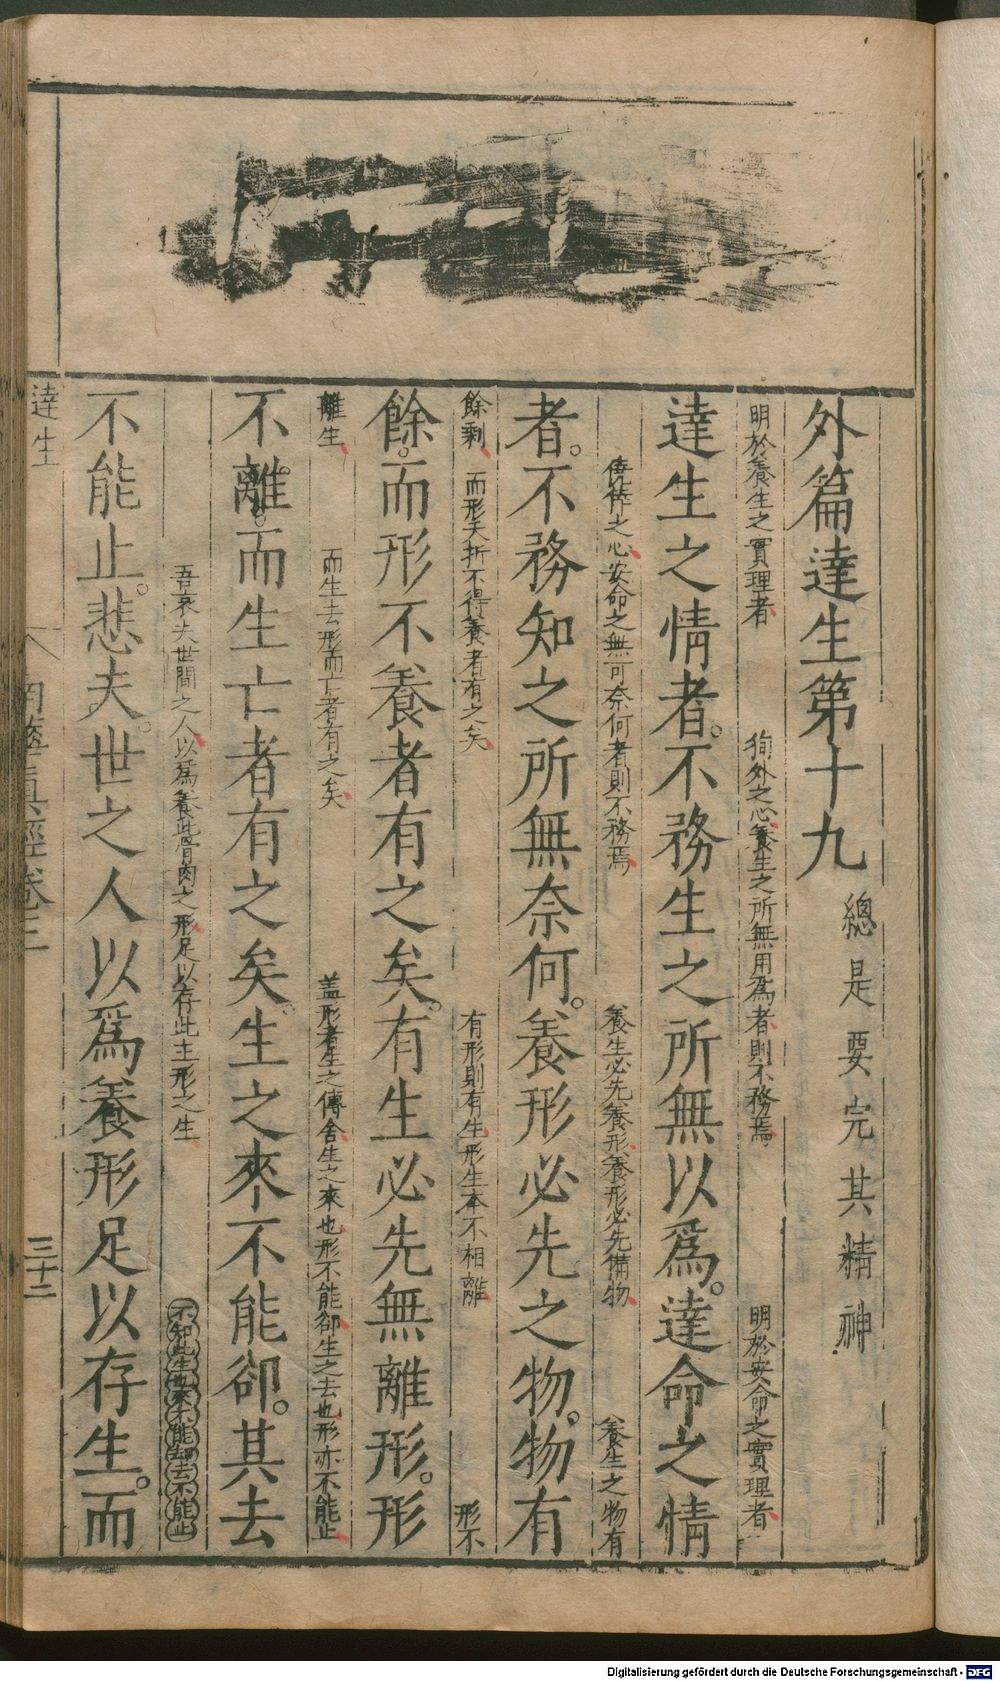 外篇達生第十九 總是要完其精神
明於養生之實理者 狥外之心養生之所無用為者則不務焉 明於安命之實理者
達生之情者。不務生之所無以爲。達命之情
僥倖之心安命之無可奈何者則不務焉 養生必先養形養形必先備物 養生之物有
者。不務知之所無奈何。養形必先之物。物有
餘剩 而形夭折不得養者有之矣 有形則有生形生本不相離 形不
餘。而形不養者有之矣。有生必先無離形。形
離生 而生去形而亡者有之矣 盖形者生之傳舍生之來也形不能卻生之去也形亦不能止
不離。而生亡者有之矣。生之來不能卻。其去
吾哀夫世間之人以爲養此骨肉之形足以存此主形之生 不知此生也來不能却去不能止
不能止。悲夫。世之人以爲養形足以存生。而
達生
南華真經卷三
三十二
Digitalisierung gefördert durch die Deutsche Forschungsgemeinschaft - DFG